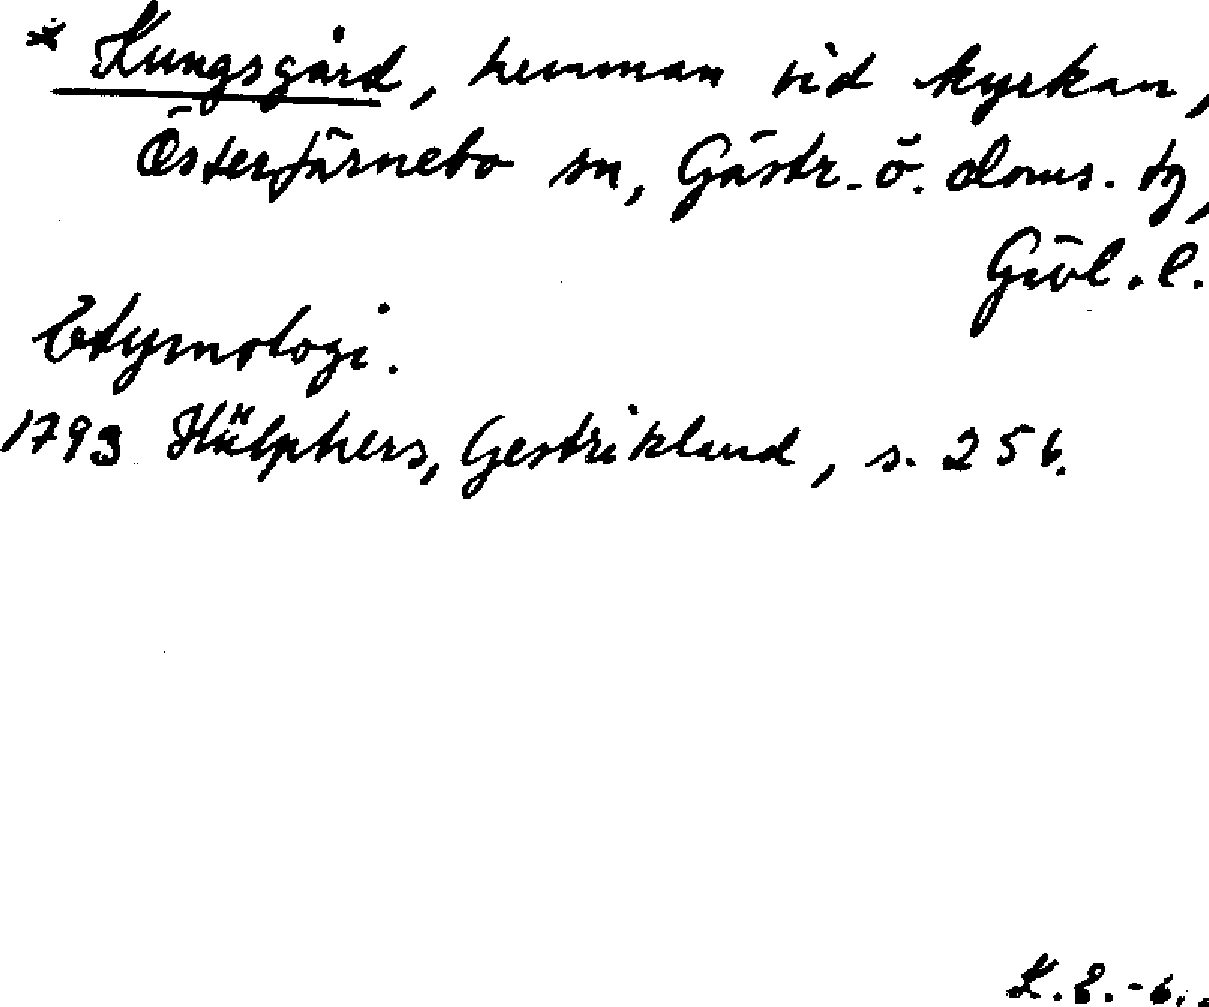 * Kungsgård, hemman vid kyrkan,
Österfärnebo sn, Gästr. ö. doms. tg,
Gävl. l.
Etymologi.
1793 Hülphers, Gestrikland, s. 256.